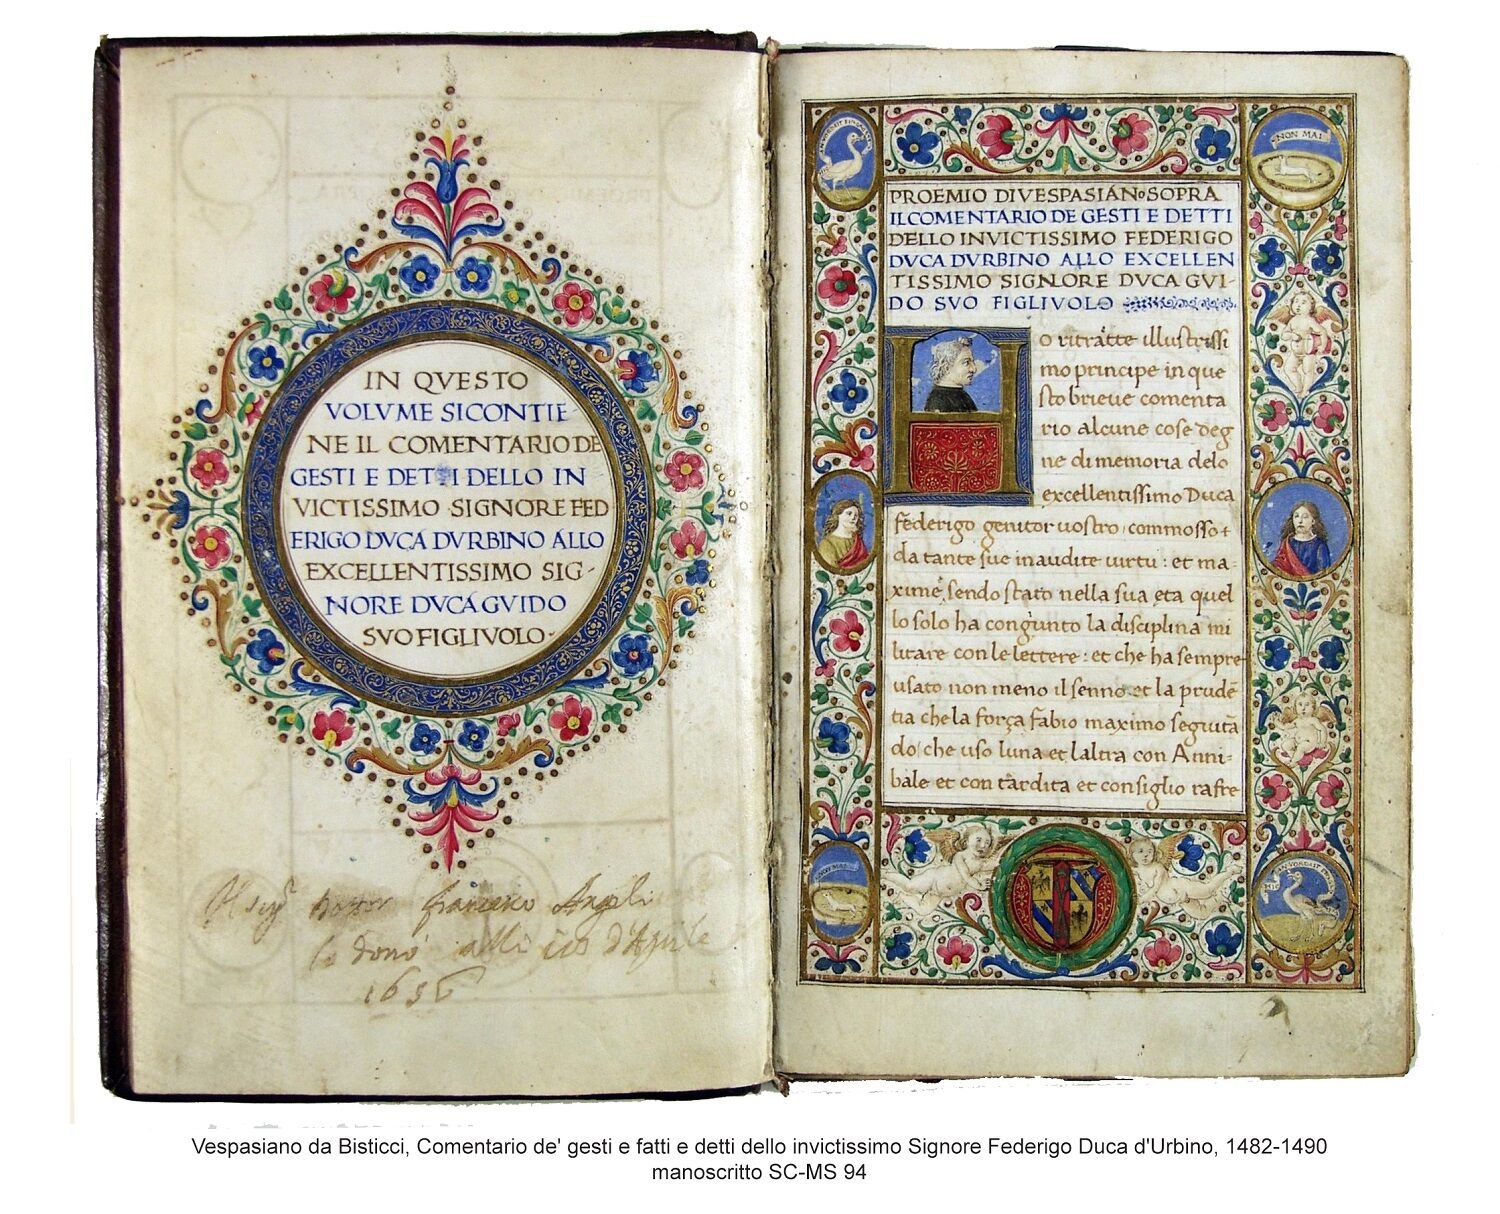 IN QVESTO
VOLVME SICONTIE
NE IL COMENTARIO DE
GESTI E DETTI DELLO IN
VICTISSIMO SIGNORE FED
ERIGO DVCA DVRBINO ALLO
EXCELLENTISSIMO SIG-
NORE DVCA GVIDO
SVO FIGLIVOLO·
francesco Angeli
lo donò alli d'Aprile
1656
NON MAI
PROEMIO DIVESPASIANo SOPRA
ILCOMENTARIO DE GESTI E DETTI
DELLO INVICTISSIMO FEDERIGO
DVCA DVRBINO ALLO EXCELLEN
TISSIMO SIGNORE DVCA GVI-
DO SVO FIGLIVOLO
o ritratte illustrissi
mo principe in que
sto brieue comenta
rio alcune cose deg
ne di memoria delo
excellentissimo Duca
federigo genitor uostro: commosso
da tante sue inaudite uirtu: et ma-
xime sendo stato nella sua eta quel
lo solo ha congunto la disciplina mi
litare con le lettere: et che ha sempre
usato non meno il senno et la prudē
tia che la força fabio maximo seguita
do: che uso luna et laltra con Anni-
bale et con tardita et consiglio rafre
NON MAI
Vespasiano da Bisticci, Comentario de' gesti e fatti e detti dello invictissimo Signore Federigo Duca d'Urbino, 1482-1490
manoscritto SC-MS 94